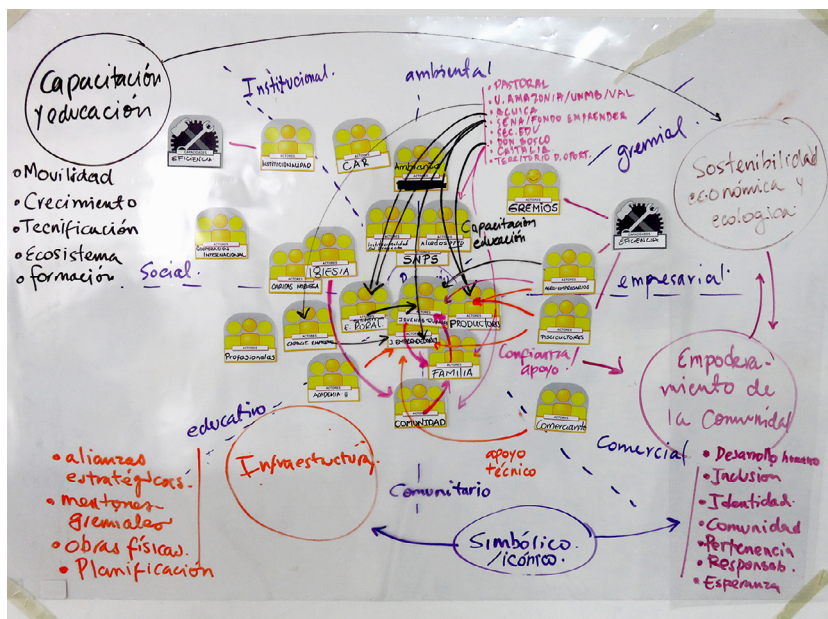 Capacitación
y educación
• Movilidad
• Crecimiento
• Tecnificación
• Ecosistema
• formación
Institucional
ambiental
• PASTORAL
• U. AMAZONIA/UNMB/VAL
• ACUICA
• SENA/FONDO EMPRENDER
• SEC. EDU
• DON BOSCO
• CASTALIA
• TERRITORIO D. OPORT.
gremial
Sostenibilidad
económica y
ecologica
CAPACIDADES
EFICIENCIA
ACTORES
INSTITUCIONALIDAD
ACTORES
CAR
Ambiental
ACTORES
GREMIOS
CAPACIDADES
EFICIENCIA
ACTORES
INTERNACIONAL
ACTORES
SNPS
Capacitación
educación
Social
ACTORES
IGLESIA
ACTORES
AGRO-EMPRESARIOS
empresarial
E. RURAL
ACTORES
PRODUCTORES
ACTORES
PISCICULTORES
ACTORES
Profesionales
ACTORES
J. EMPRENDEDORES
ACTORES
FAMILIA
Confianza/
apoyo
Empodera-
miento de
la Comunidad
ACTORES
ACADEMIA
ACTORES
COMUNIDAD
ACTORES
Comerciante
educativo
Infraestructura
apoyo
técnico
Comercial
• alianzas
estratégicas
• mentores
gremiales
• obras físicas
• Planificación
Comunitario
Simbólico
/icónico
• Desarrollo humano
• Inclusion
• Identidad
• Comunidad
• Pertenencia
• Responsab.
• Esperanza